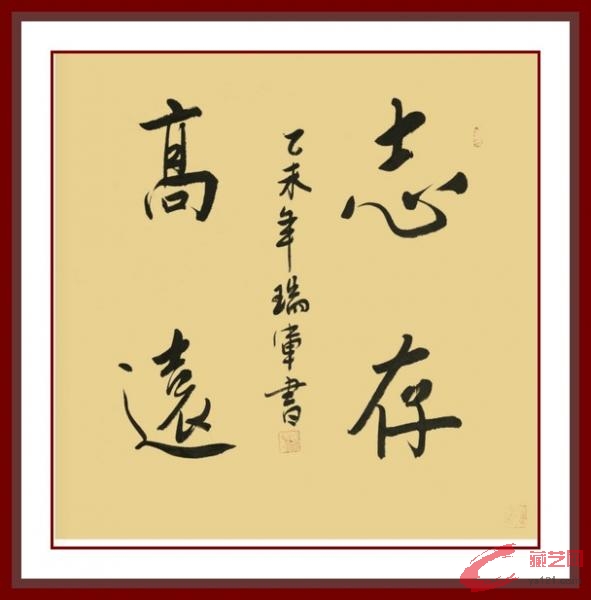 志存
高遠
乙未年瑞軍書
藏艺网